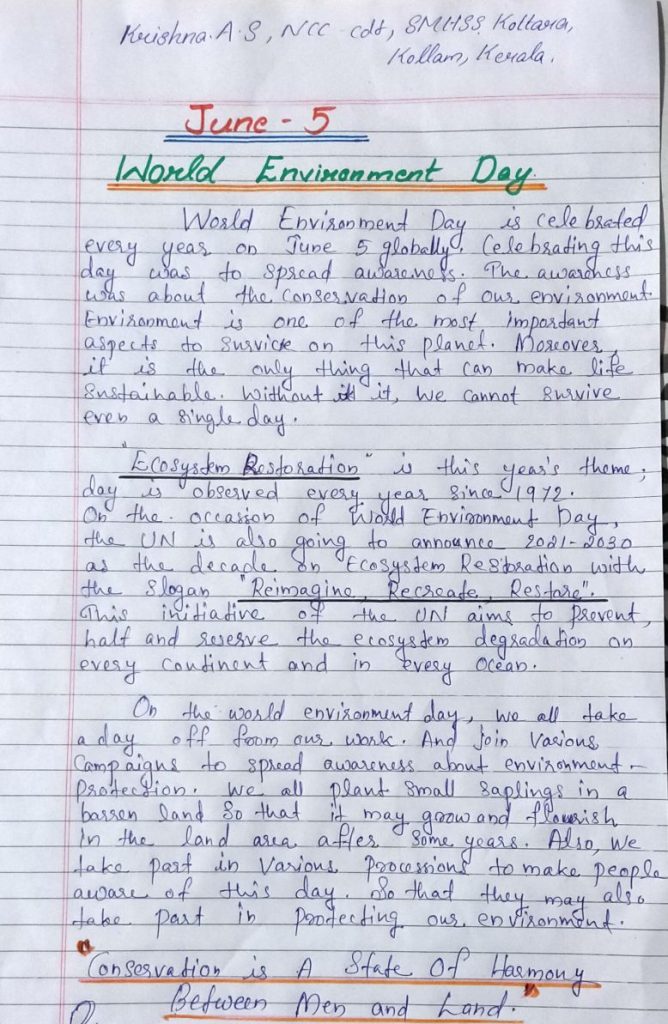 Krishna. A. S, NCC cdt, SMHSS, Kottara,
Kollam, Kerala.
June - 5
World Environment Day.
World Environment Day is celebrated
every year on June 5 globally. Celebrating this
day was to spread awareness. The awareness
was about the conservation of our environment.
Environment is one of the most important
aspects to survive on this planet. Moreover,
it is the only thing that can make life
sustainable. Without it, we cannot survive
even a single day.
"Ecosystem Restoration" is this year's theme;
day is observed every year since 1972.
On the occassion of World Environment Day,
the UN is also going to announce 2021-2030
as the decade on Ecosystem Restoration with
the slogan "Reimagine, Recreate, Restore".
This initiative of the UN aims to prevent,
half and reserve the ecosystem degradation on
every continent and in every ocean.
On the world environment day, we all take
a day off from our work. And join various
campaigns to spread awareness about environment-
protection. We all plant small saplings in a
barren land so that it may grow and flourish
in the land area after some years. Also, we
take part in various processions to make people
aware of this day. So that they may also
take part in protecting our environment.
"Conservation is A State Of Harmony
Between Men and Land."